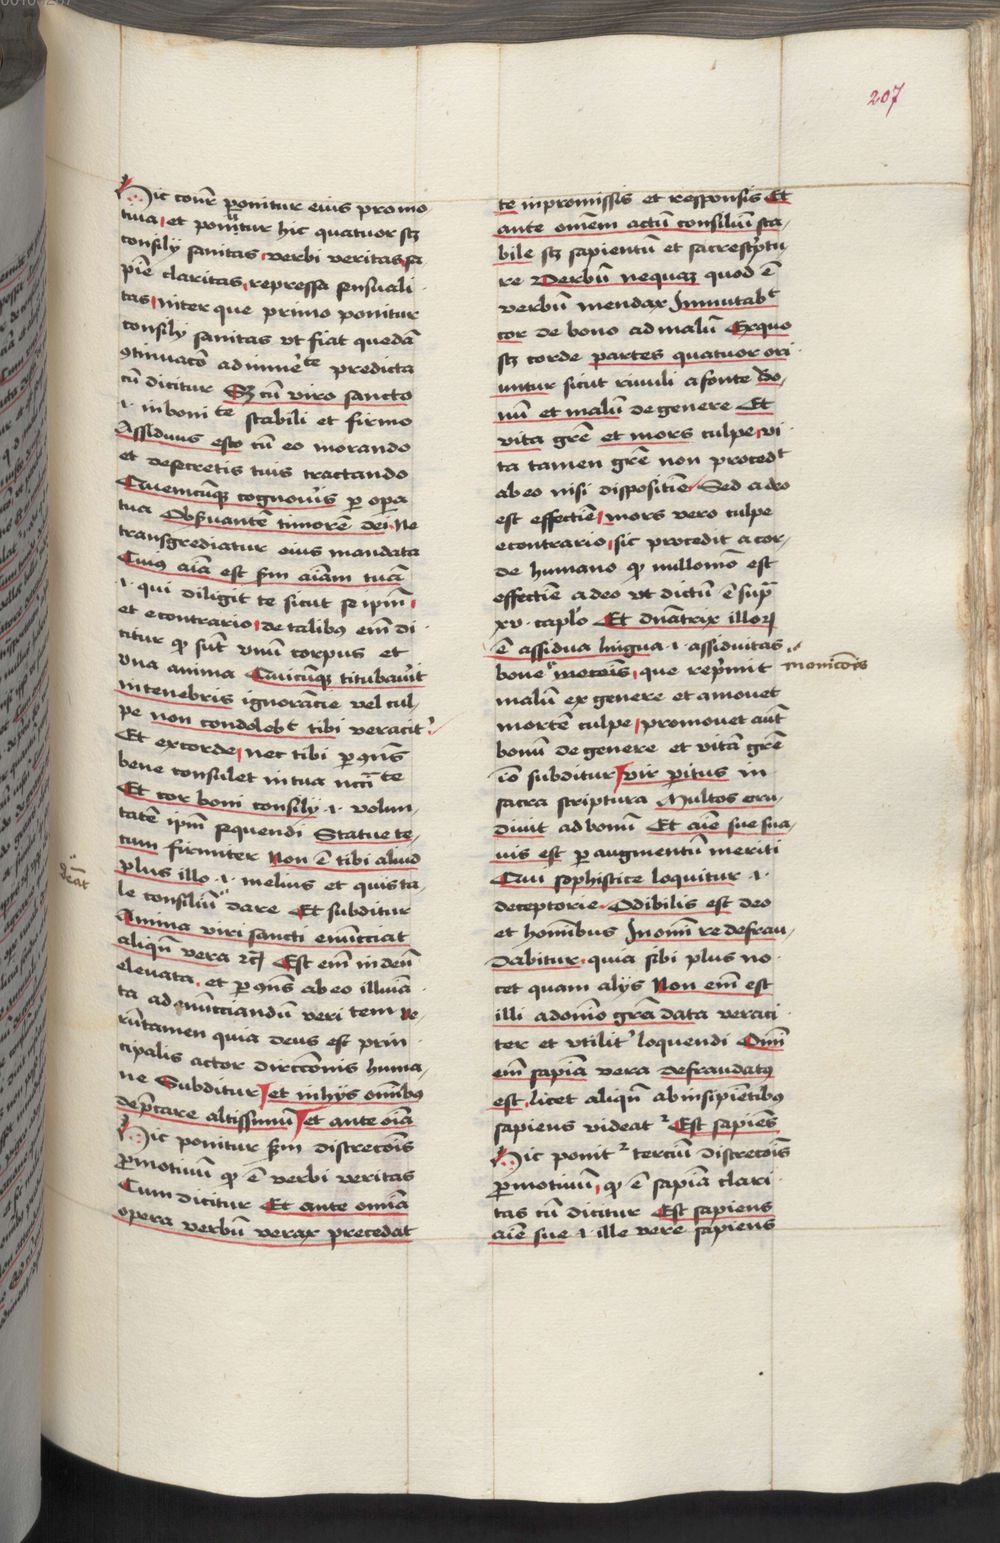 207
Hic conr̄ ponitur eius promo
tiua et ponūtur hic quatuor scꝫ
consilij sanitas verbi veritas sa
pīe claritas repressa sensuali
tas inter que primo ponitur
consilij sanitas vt fiat quedā
ꝯtinuacō
predicta
cū dicitur Sꝫ cū viro sancto
.i. in boni te stabili et firmo
Assiduus esto cū eo morando
et de secretis tuis tractando
Quemcūqꝫ cognouīs per opera
tua Obseruantē timorē dei Ne
transgrediatur eius mandata
Cuius aīa est scđm aīam tuā
.i. qui diligit te sicut se ipm̄
et econtrario de talibꝰ em̄ di
citur qꝫ sūt vnū corpus et
vna anima Quicūqꝫ titubaūit
in tenebris ignorācie vel cul
pe non condolebt tibi veracit᷑
Et ex corde nec tibi per ꝯn̄s
bene consulet in tua nccīte
Et cor boni consilij .i. volun
tatē ipm̄ sequendi Statue te
cum firmiter Non ē tibi aliud
plus illo .i. melius et quis ta
le consiliū dare Et subditur
deāt
Anima viri sancti enūcciat
aliqn̄ vera rc̄ Est em̄ in deū
eleuata et per ꝯn̄s ab eo illuīa
ta ad enūcciandū veri tem Ve
rūtamen quia deus est prin
cipalis actor direccōnis huma
ne Subditur et in hijs omībꝰ
dep̄care altissimū et ante oīa
Hic ponitur scđm discrecōis
permotiuū qꝫ ē verbi veritas
Cum dicitur Et ante omīa
opera verbū verax precedat
te in promissis et responsis Et
ante omēm actū consiliū sta
bile scꝫ sapientū et sacre scriptu
re Verbū nequaꝫ quod ē
verbū mendax Inmutabt
cor de bono ad malū Ex quo
scꝫ corde partes quatuor ori
untur sicut riuuli a fonte Bo
nū et malū de genere Et
vita grē et mors culpe vi
ta tamen grē non procedt
ab eo nisi dispositiē Sed a deo
est effectiē mors vero culpe
econtrario sic procedit a cor
de humano qꝫ nullomō est
effectiē a deo vt dictū ē sup̄
xv. caplo Et dn̄atrix illoꝝ
ē assidua lingua .i. assiduitas
bone
que rep̄mit
monicōis
malū ex genere et amouet
mortē culpe promouet aūt
bonū de genere et vitā grē
iō subditur vir peritus in
sacra scriptura Multos eru
diuit ad bonū Et aīe sue sua
uis est per augmentū meriti
Qui sophistice loquitur .i.
deceptorie Odibilis est deo
et homībus In omī re defrau
dabitur quia sibi plus no
cet quam alijs Non em̄ est
illi a domīo grā data veraci
ter et vtilit᷑ loquendi Omī
em̄ sapīa vera defraudatꝰ
est licet aliqn̄ ab insipiētibꝰ
sapiens videat᷑ Est sapiēs
Hic ponit᷑ terciū discrecōis
permotiuū qꝫ ē sapīa clari
tas cū dicitur Est sapiens
aīe sue .i. ille vere sapiens